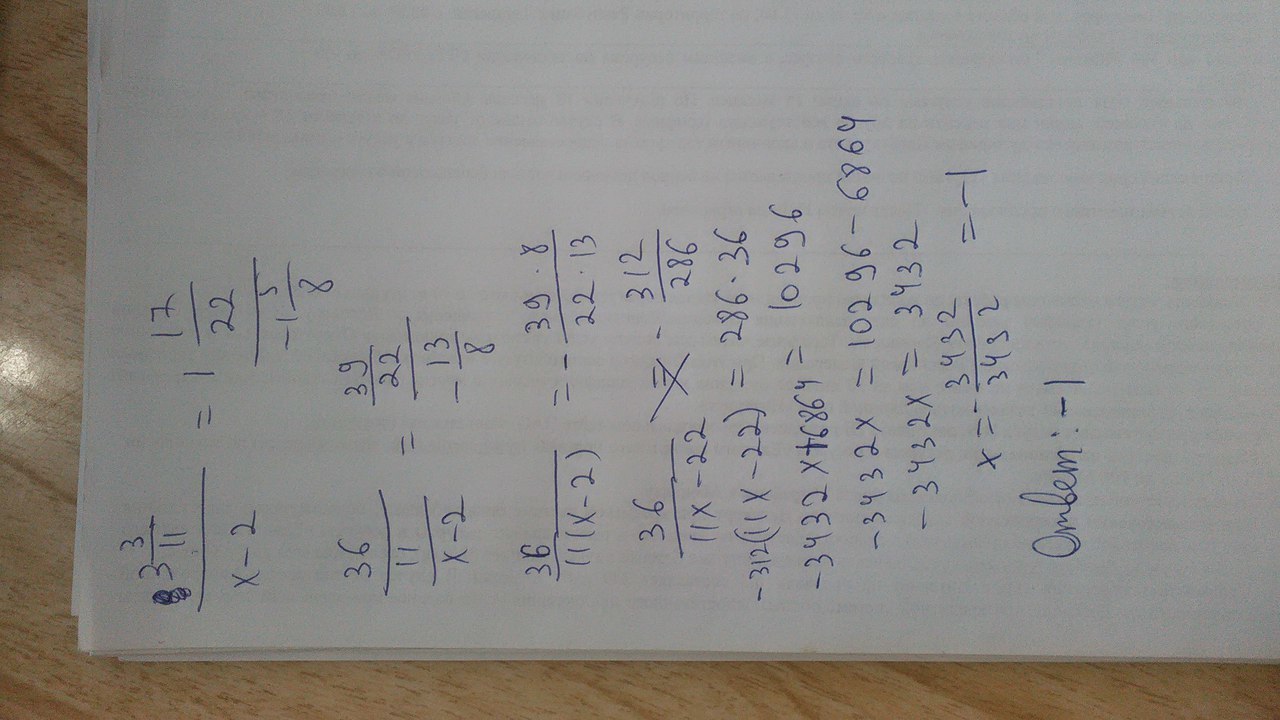 3 3/11 / (x-2) = 1 17/22 / (-1 5/8)
36/11 / (x-2) = 39/22 / (-13/8)
36 / 11(x-2) = - 39·8 / 22·13
36 / 11x-22 = - 312 / 286
-312(11x-22) = 286·36
-3432x+6864 = 10296
-3432x = 10296-6864
-3432x = 3432
x = - 3432/3432 = -1
Ответ: -1